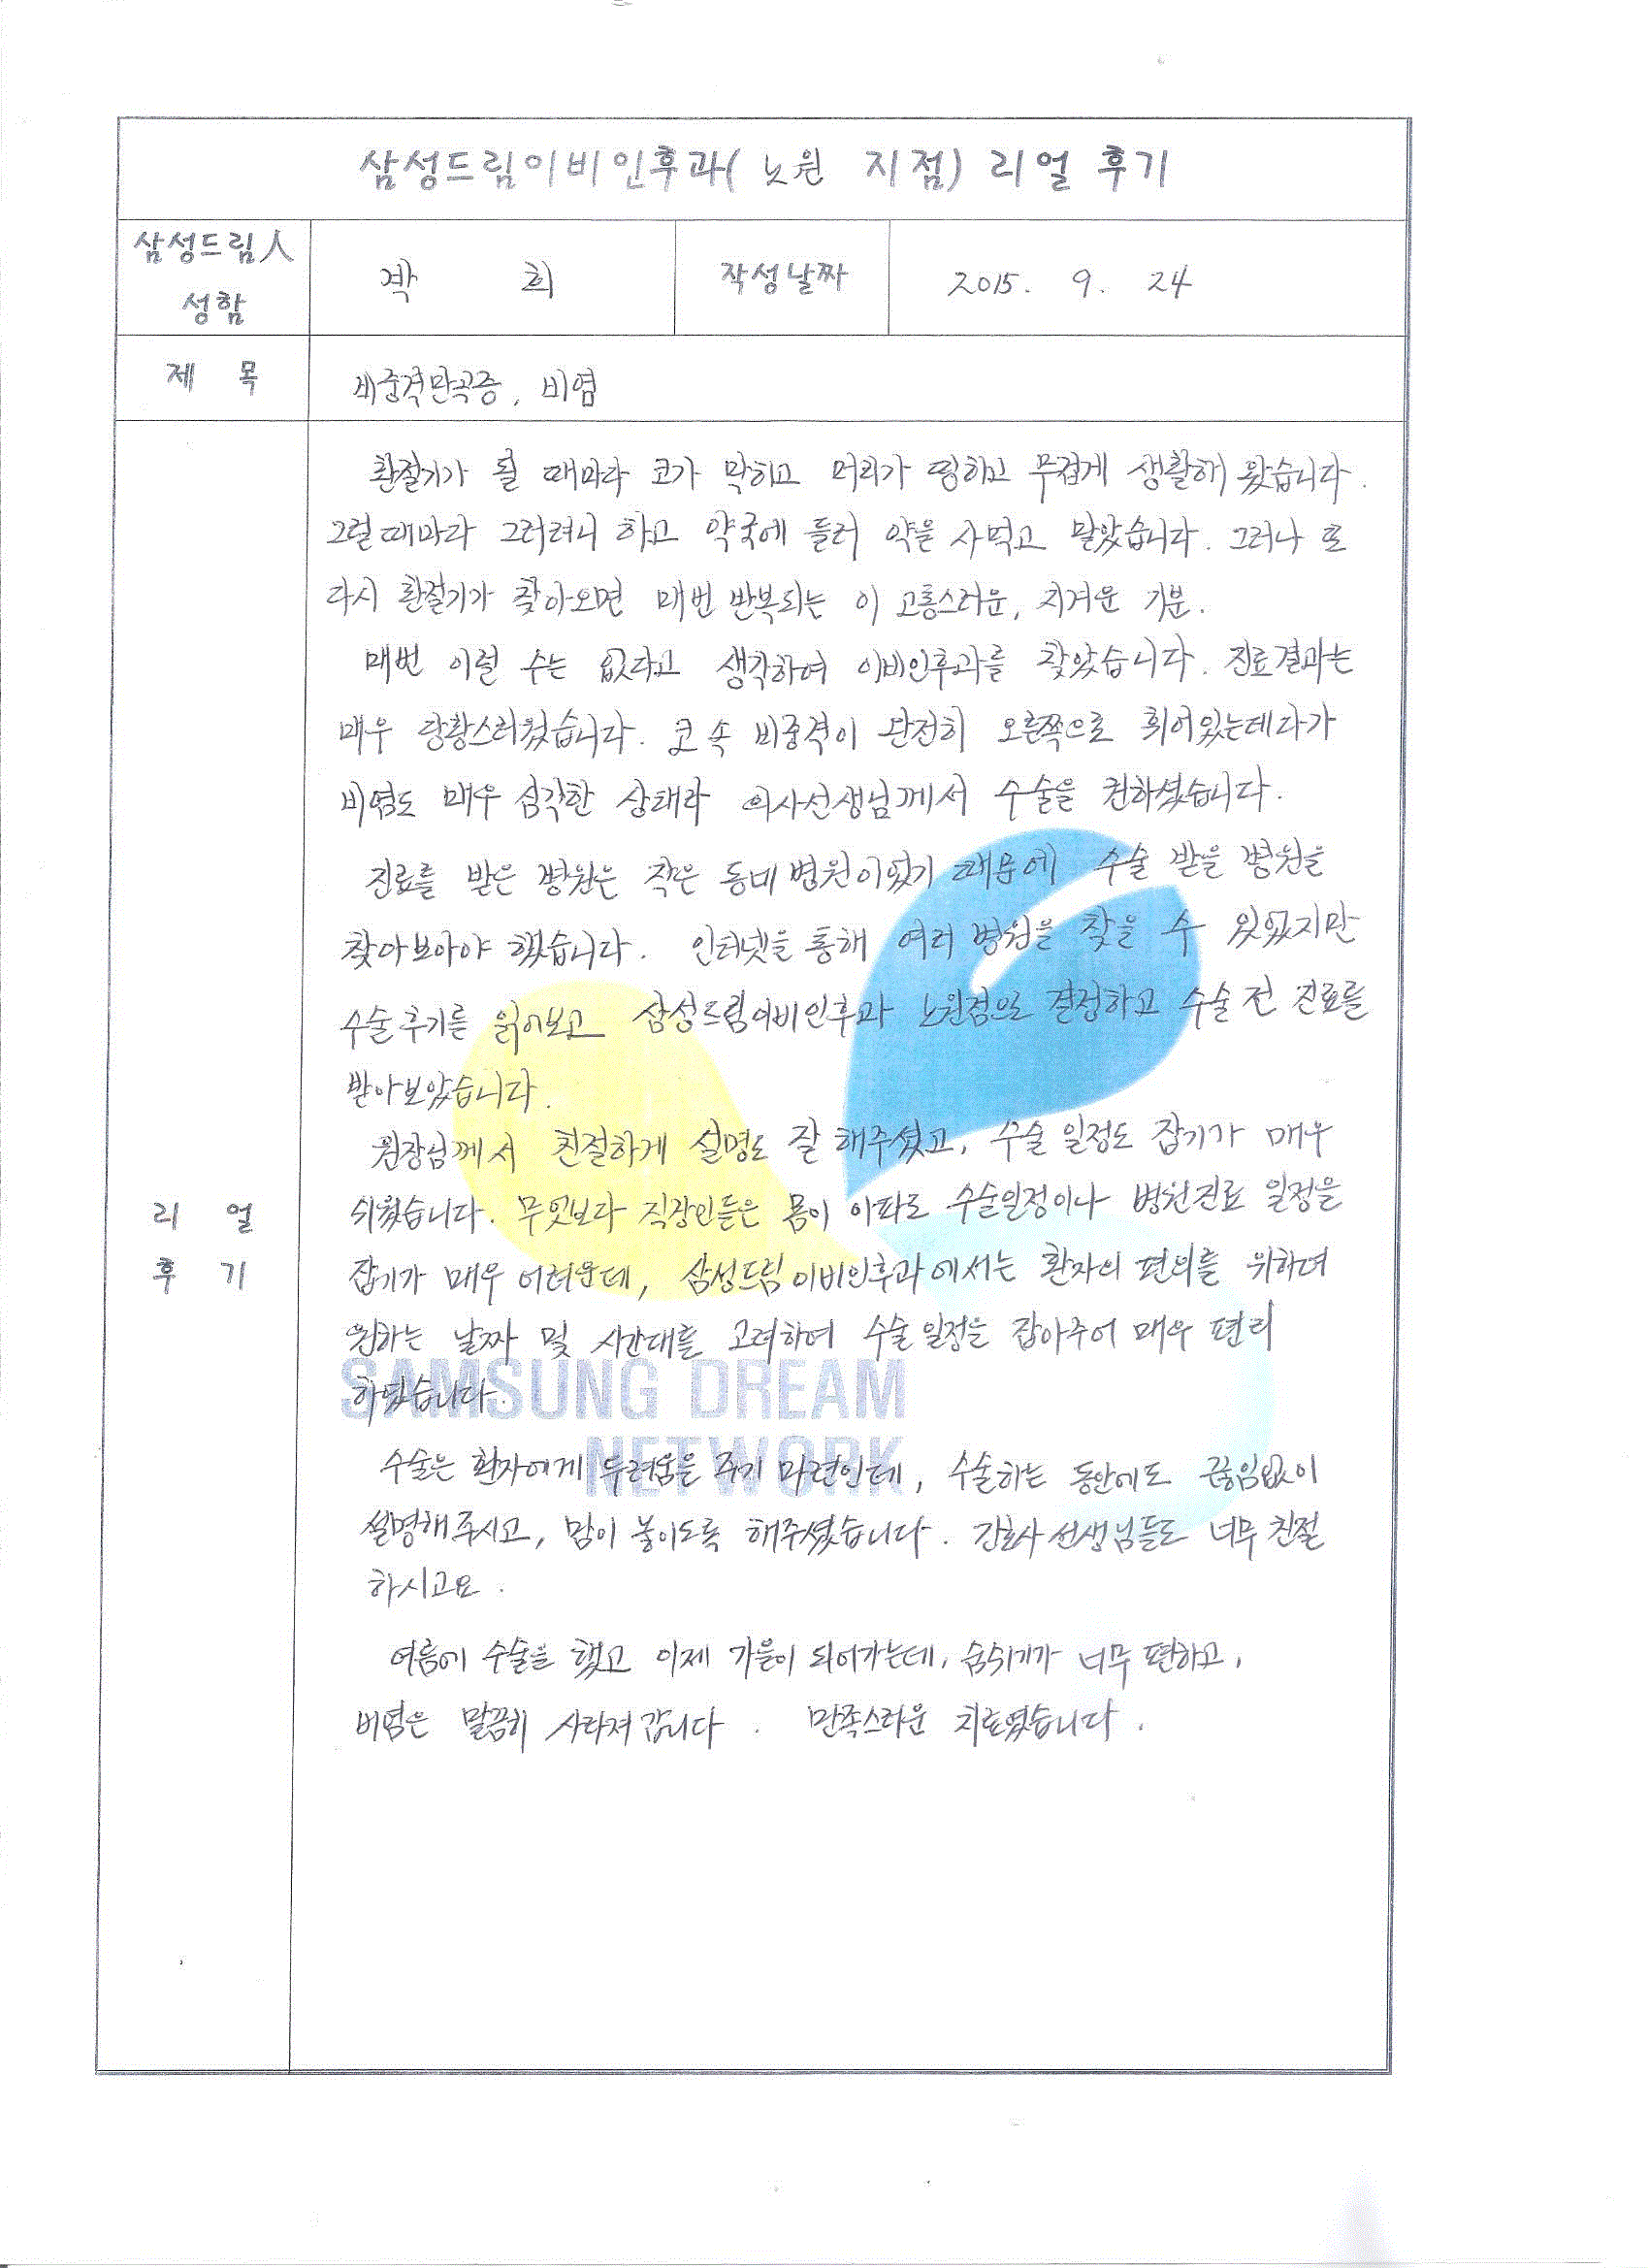 삼성드림이비인후과( 노원 지점) 리얼 후기
삼성드림人 성함
박 희
작성날짜
2015. 9. 24
제 목
비중격만곡증, 비염
리 얼
후 기
환절기가 될 때마다 코가 막히고 머리가 띵하고 무겁게 생활해 왔습니다.
그럴때마다 그러려니 하고 약국에 들러 약을 사먹고 말았습니다. 그러나 또
다시 환절기가 찾아오면 매번 반복되는 이 고통스러운, 지겨운 기분.
매번 이럴 수는 없다고 생각하여 이비인후과를 찾았습니다. 진료결과는
매우 당황스러웠습니다. 코 속 비중격이 완전히 오른쪽으로 휘어있는데다가
비염도 매우 심각한 상태라 의사선생님께서 수술을 권하셨습니다.
진료를 받은 병원은 작은 동네 병원이었기 때문에 수술 받을 병원을
찾아보아야 했습니다. 인터넷을 통해 여러 병원을 찾을 수 있었지만
수술후기를 읽어보고 삼성드림이비인후과 노원점으로 결정하고 수술 전 진료를
받아보았습니다.
원장님께서 친절하게 설명도 잘 해주셨고, 수술 일정도 잡기가 매우
쉬웠습니다. 무엇보다 직장인들은 몸이 아파도 수술일정이나 병원진료 일정을
잡기가 매우 어려운데, 삼성드림이비인후과에서는 환자의 편의를 위하여
원하는 날짜 및 시간대를 고려하여 수술 일정을 잡아주어 매우 편리
하였습니다.
SAMSUNG DREAM
NETWORK
수술은 환자에게 두려움을 주기 마련인데, 수술하는 동안에도 끊임없이
설명해주시고, 맘이 놓이도록 해주셨습니다. 간호사 선생님들도 너무 친절
하시고요.
여름에 수술을 했고 이제 가을이 되어가는데, 숨쉬기가 너무 편하고,
비염은 말끔히 사라져 갑니다. 만족스러운 치료였습니다.